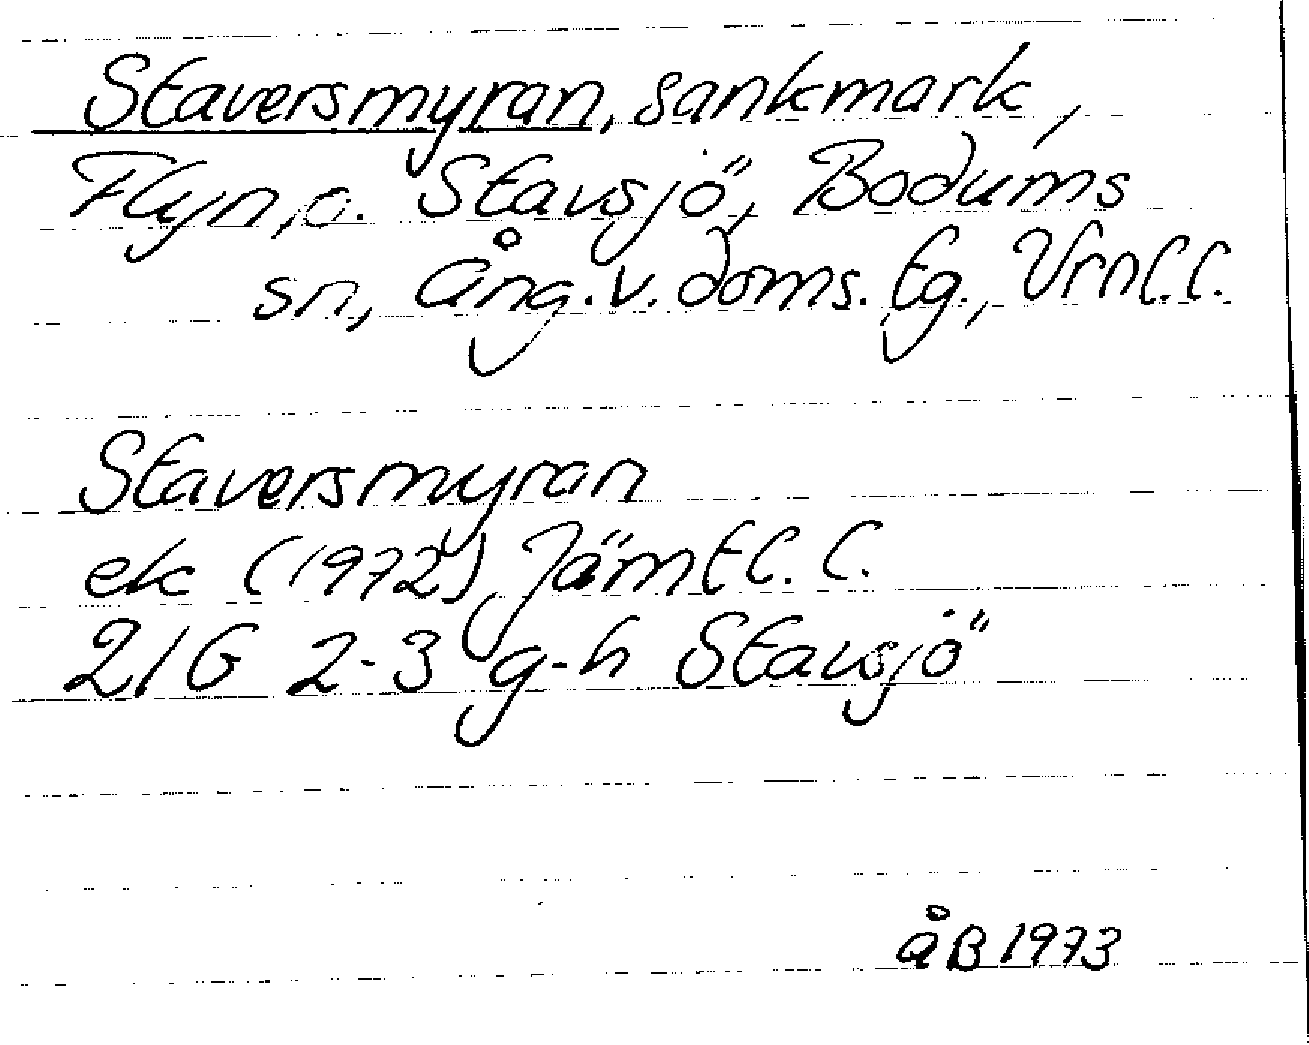 Staversmyran, sankmark,
Flyn, o. Stavsjö, Bodums
sn, Ång. v. doms. tg., Vrnl. l.
Staversmyran
ek (1972) Jämtl. l.
21G 2-3 g-h Stavsjö
åB 1973